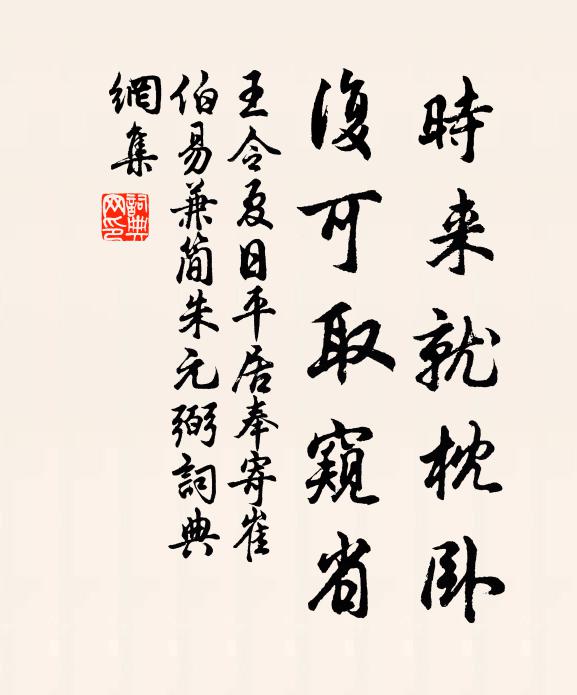 時来就枕卧
復可取窺省
王令夏日平居奉寄崔
伯易兼簡朱元弼詞典
網集
詞典
网印